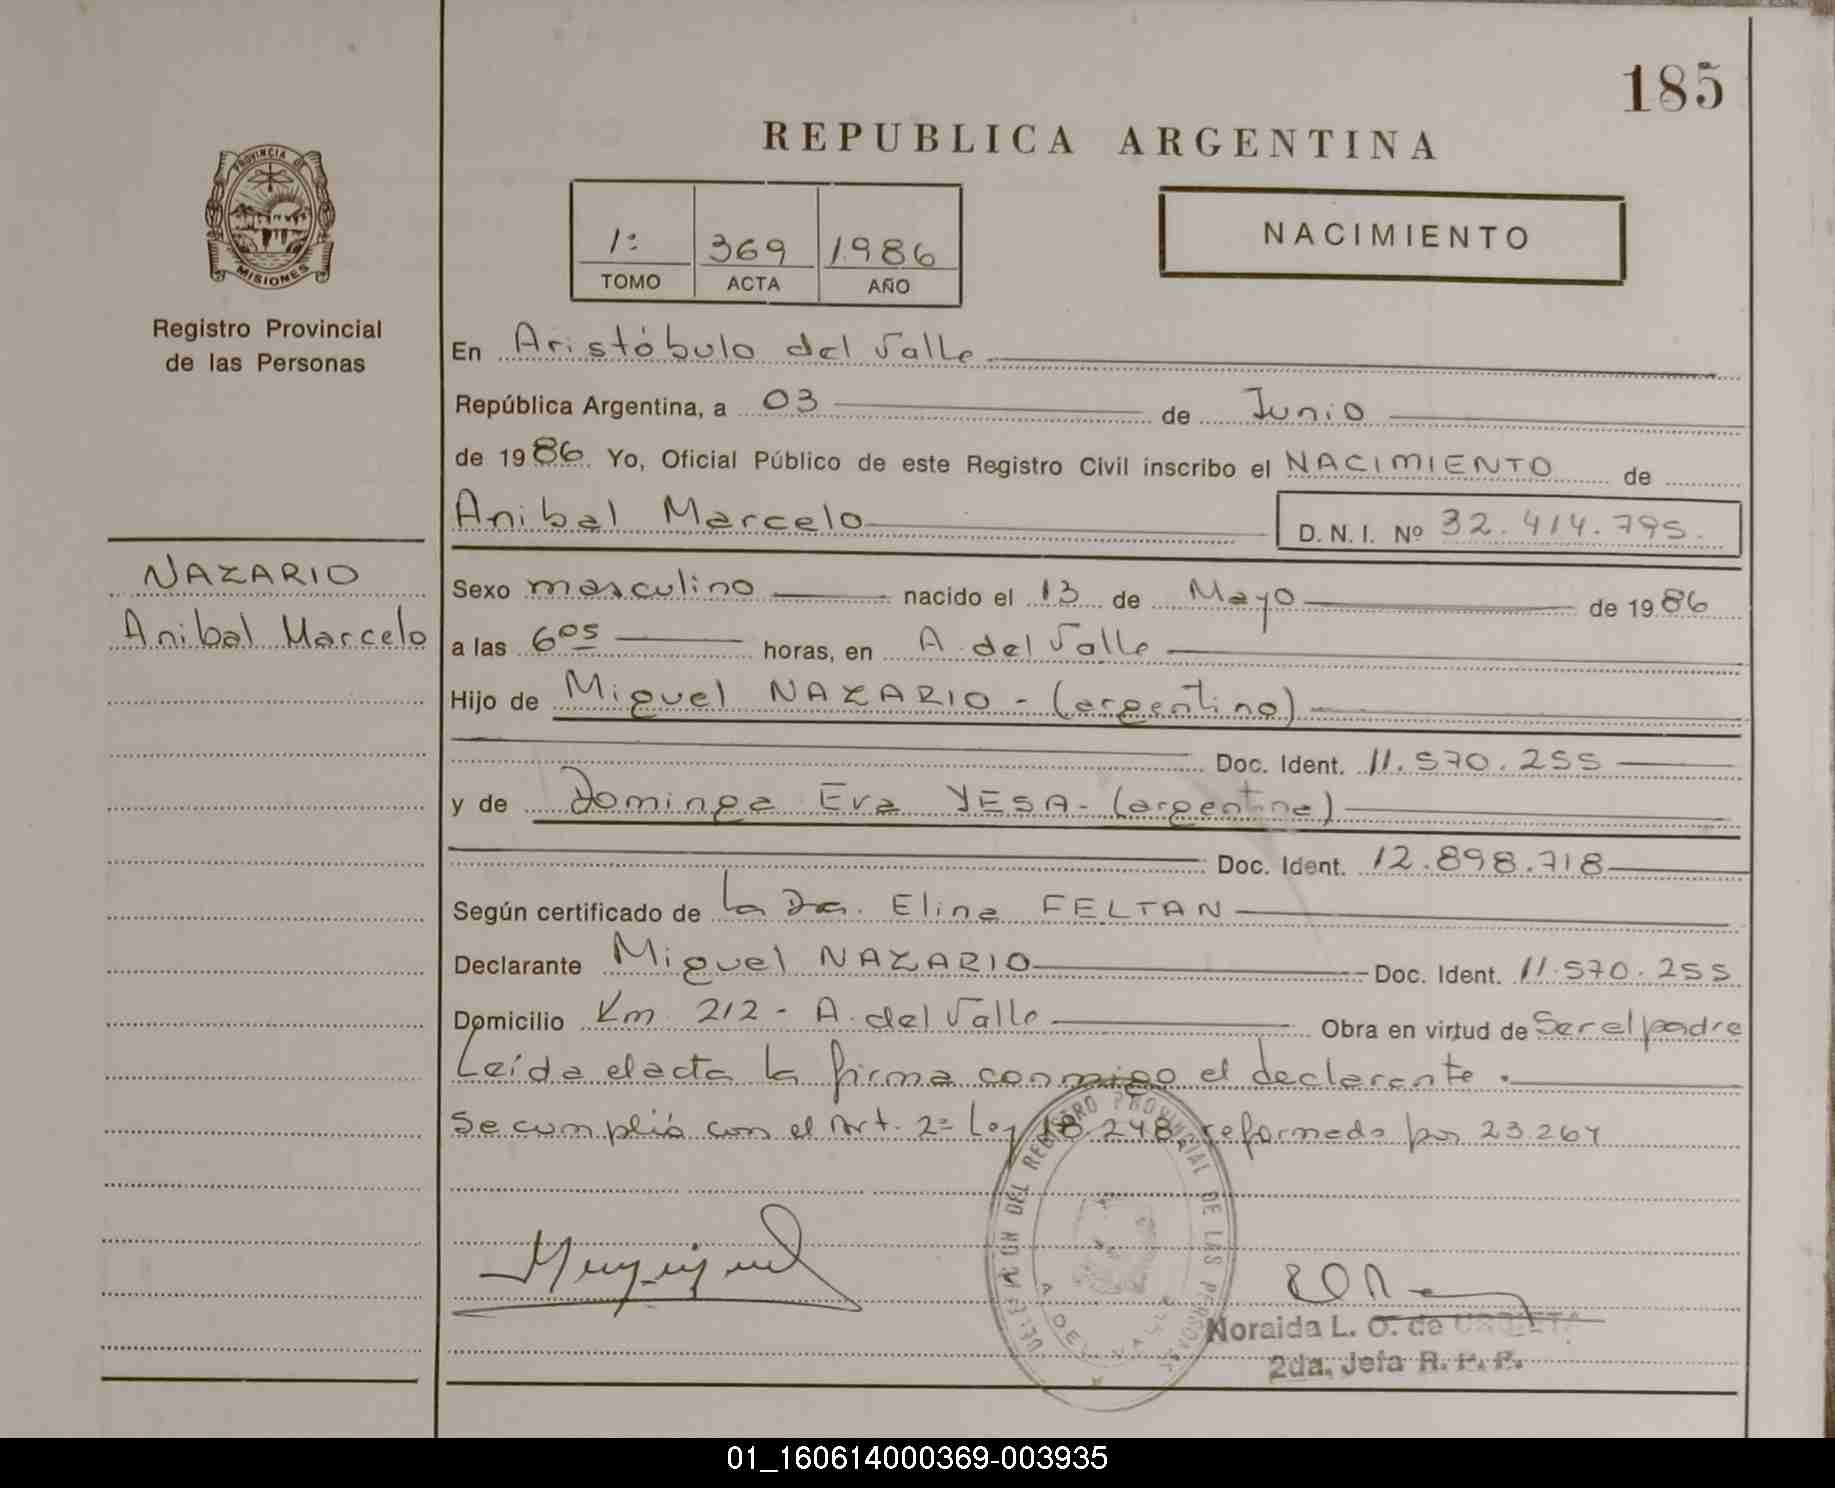 185
REPUBLICA ARGENTINA
PROVINCIA DE
MISIONES
Registro Provincial
de las Personas
1º 369 1986
TOMO ACTA AÑO
NACIMIENTO
En Aristóbulo del Valle
República Argentina, a 03 de Junio
de 1986. Yo, Oficial Público de este Registro Civil inscribo el NACIMIENTO de
Anibal Marcelo
D. N. I. Nº 32.414.795.
NAZARIO
Anibal Marcelo
Sexo masculino nacido el 13 de Mayo de 1986
a las 6 05 horas, en A. del Valle
Hijo de Miguel NAZARIO - (argentino)
Doc. Ident. 11.570.255
y de Dominga Eva YESA - (argentina)
Doc. Ident. 12.898.718
Según certificado de La Dra. Elina FELTAN
Declarante Miguel NAZARIO Doc. Ident. 11.570.255
Domicilio Km 212 - A. del Valle Obra en virtud de Ser el padre
Leída el acta la firma conmigo el declarante.
Se cumplió con el Art. 2º Ley 18.248, reformado por 23.264
DEL REGISTRO PROVINCIAL DE LAS PERSONAS
A. DEL VALLE
Noraida L. O. de
2da. Jefa R. P. P.
01_160614000369-003935